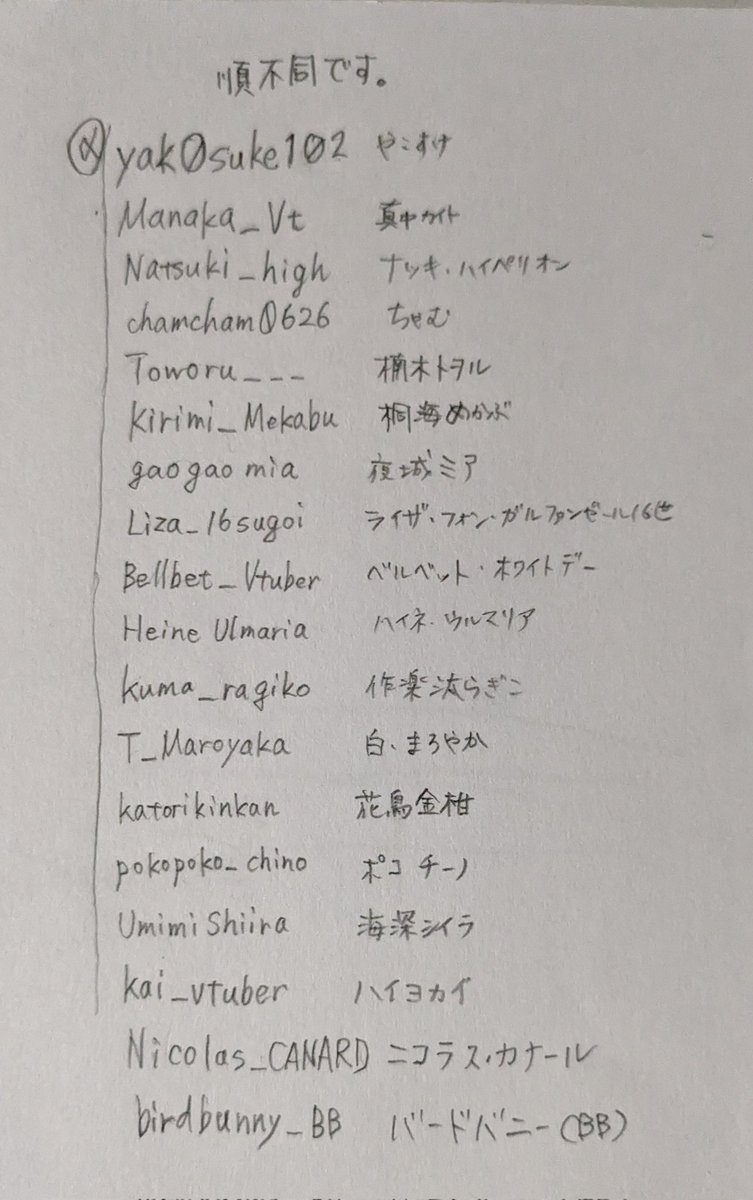 順不同です。
@yak0suke102 やこすけ
Manaka_Vt 真中カイト
Natsuki_high ナツキ・ハイペリオン
chamcham0626 ちゃむ
Toworu___ 楠木トヲル
Kirimi_Mekabu 桐海めかぶ
gaogaomia 夜城ミア
Liza_16sugoi ライザ・フォン・ガルファンゼール16世
Bellbet_Vtuber ベルベット・ホワイトデー
Heine Ulmaria ハイネ・ウルマリア
kuma_ragiko 作楽汰らぎこ
T_Maroyaka 白、まろやか
katorikinkan 花鳥金柑
pokopoko_chino ポコ チーノ
Umimi Shiira 海深シイラ
kai_vtuber ハイヨカイ
Nicolas_CANARD ニコラス・カナール
birdbunny_BB バードバニー(BB)